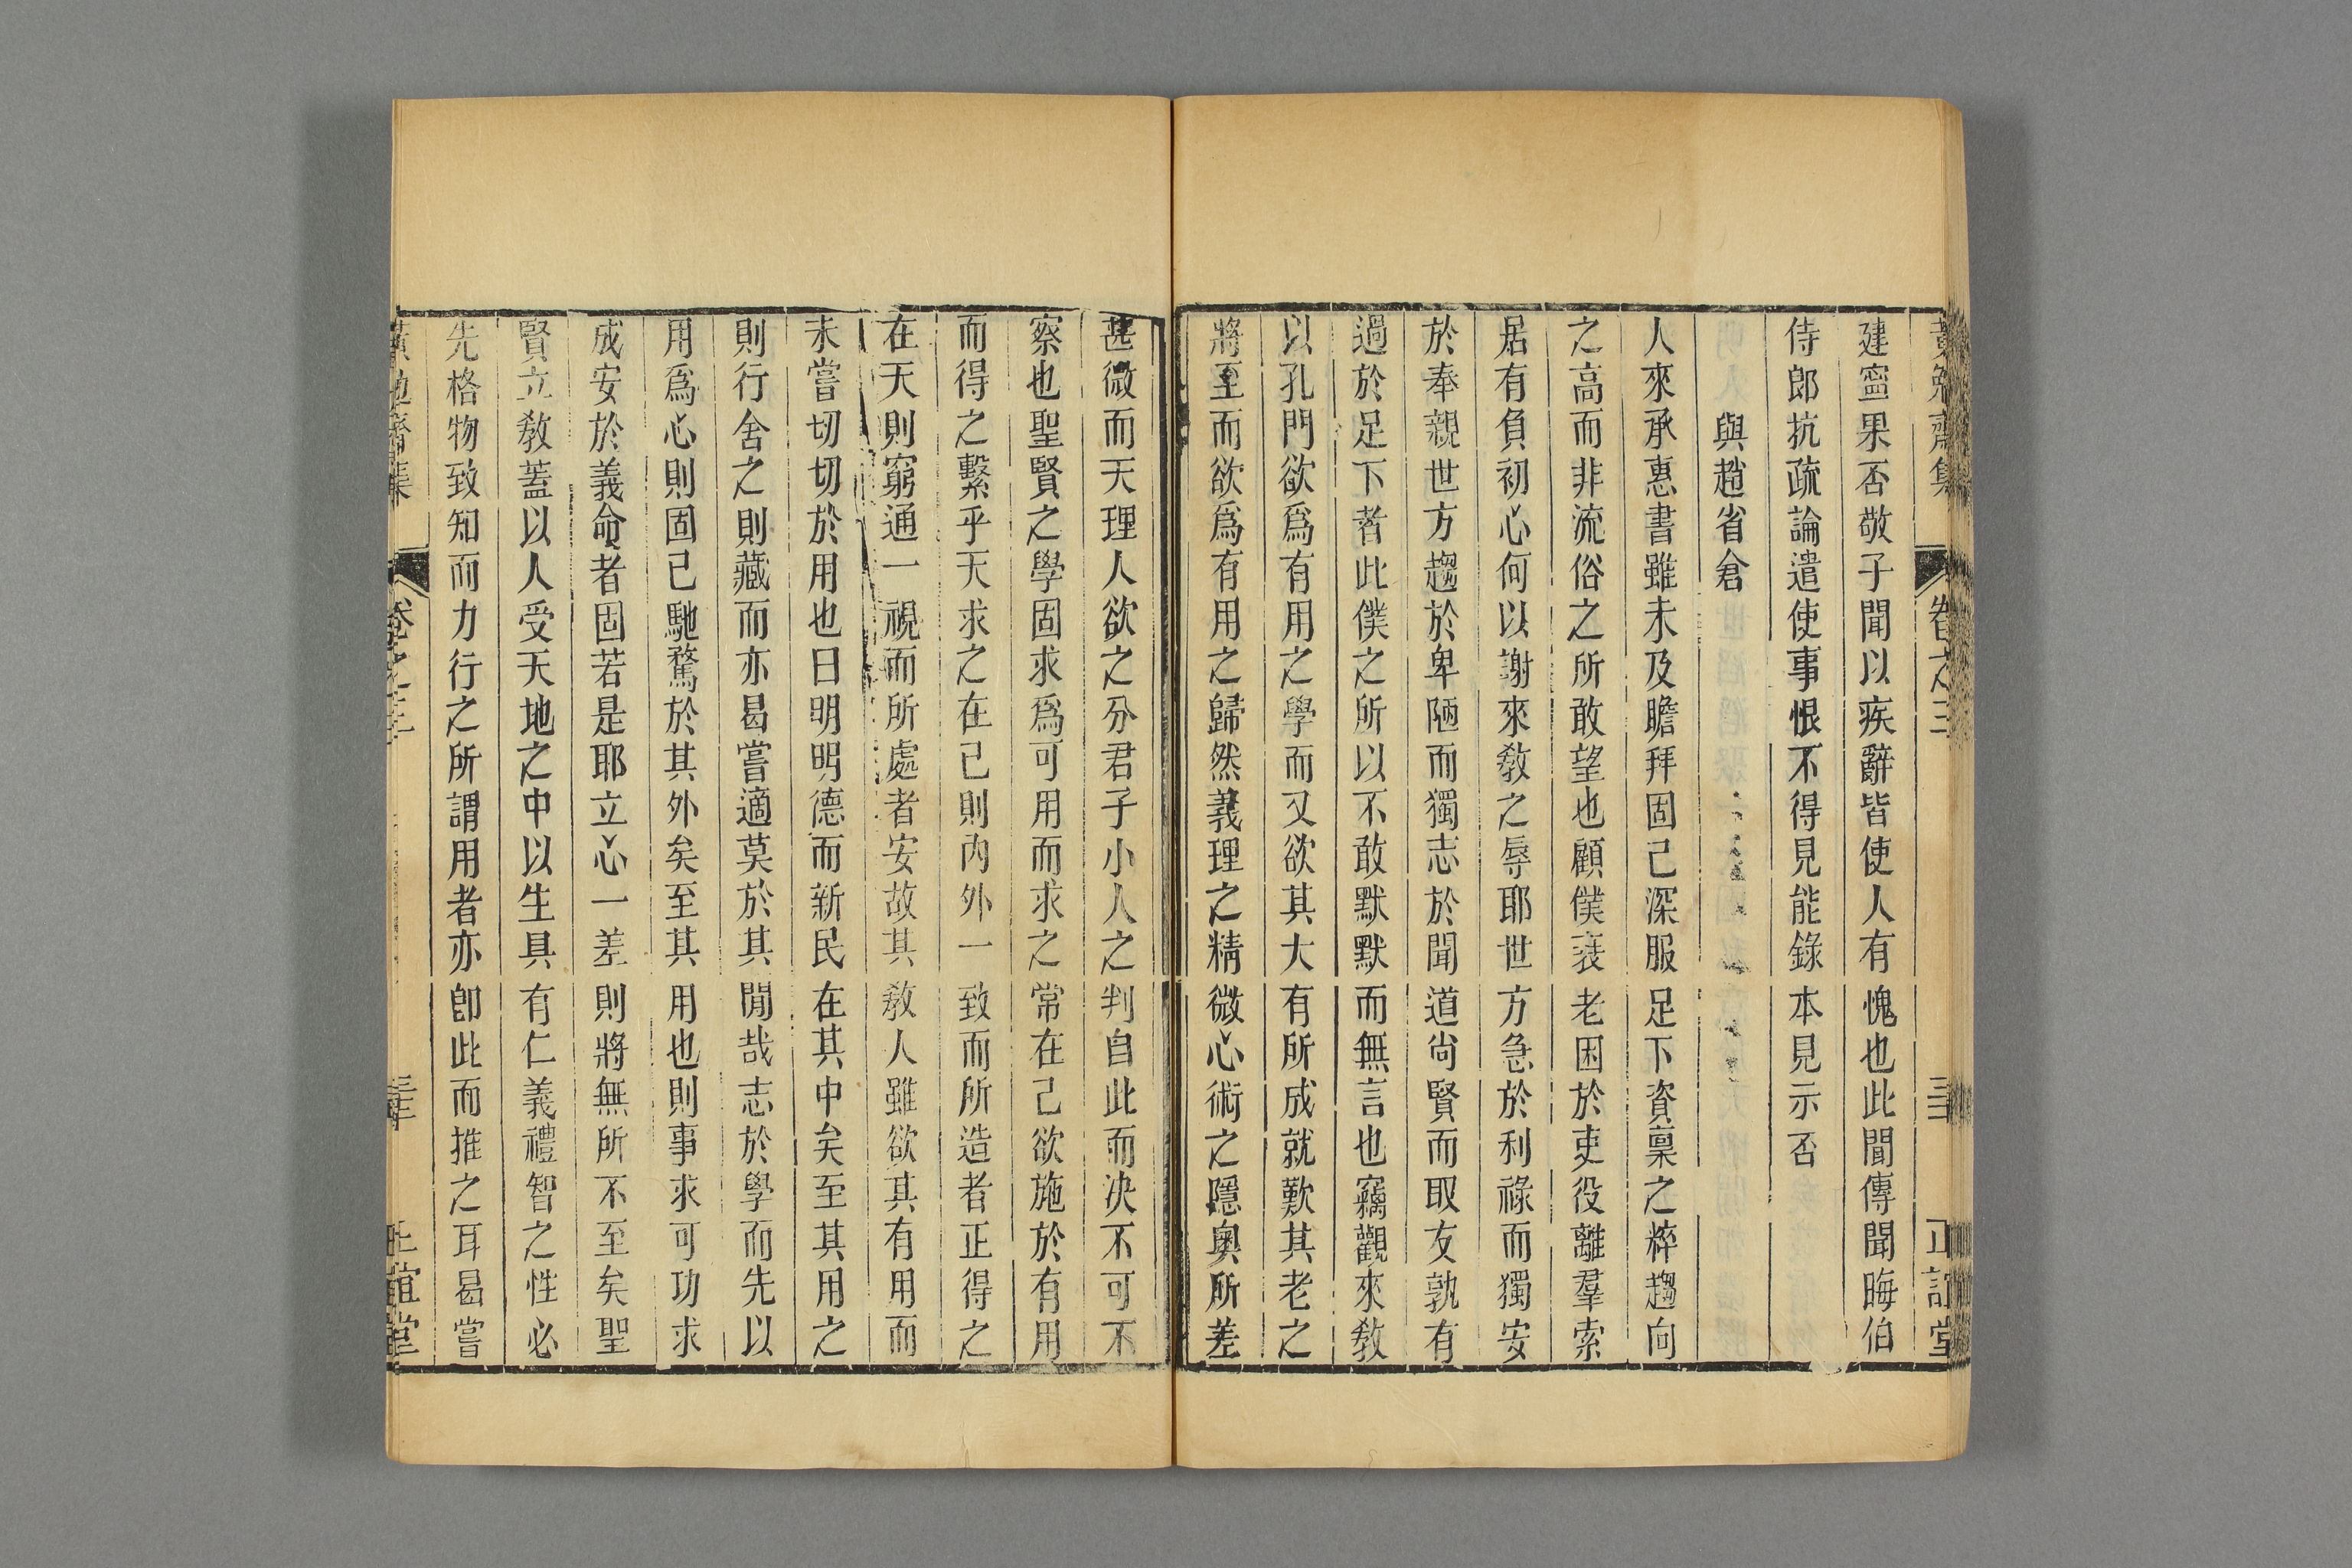 黃勉齋集 卷之三 三十 正誼堂
建寧果否敬子聞以疾辭皆使人有愧也此聞傳聞晦伯
侍郎抗疏論遣使事恨不得見能錄本見示否
與趙省倉
人來承惠書雖未及瞻拜固已深服足下資稟之粹趨向
之高而非流俗之所敢望也顧僕衰老困於吏役離羣索
居有負初心何以謝來敎之辱耶世方急於利祿而獨安
於奉親世方趨於卑陋而獨志於聞道尙賢而取友孰有
過於足下者此僕之所以不敢默默而無言也竊觀來敎
以孔門欲爲有用之學而又欲其大有所成就歎其老之
將至而欲爲有用之歸然義理之精微心術之隱奧所差
甚微而天理人欲之分君子小人之判自此而決不可不
察也聖賢之學固求爲可用而求之常在己欲施於有用
而得之繫乎天求之在己則內外一致而所造者正得之
在天則窮通一視而所處者安故其敎人雖欲其有用而
未嘗切切於用也曰明明德而新民在其中矣至其用之
則行舍之則藏而亦曷嘗適莫於其閒哉志於學而先以
用爲心則固已馳騖於其外矣至其用也則事求可功求
成安於義命者固若是耶立心一差則將無所不至矣聖
賢立敎蓋以人受天地之中以生具有仁義禮智之性必
先格物致知而力行之所謂用者亦卽此而推之耳曷嘗
黃勉齋集 卷之三 三十 正誼堂